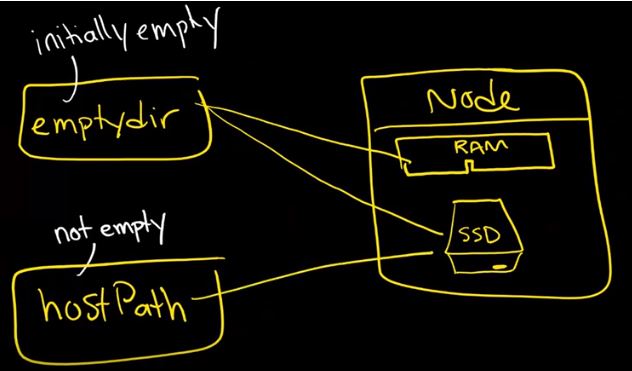 initially empty
emptydir
not empty
hostPath
Node
RAM
SSD